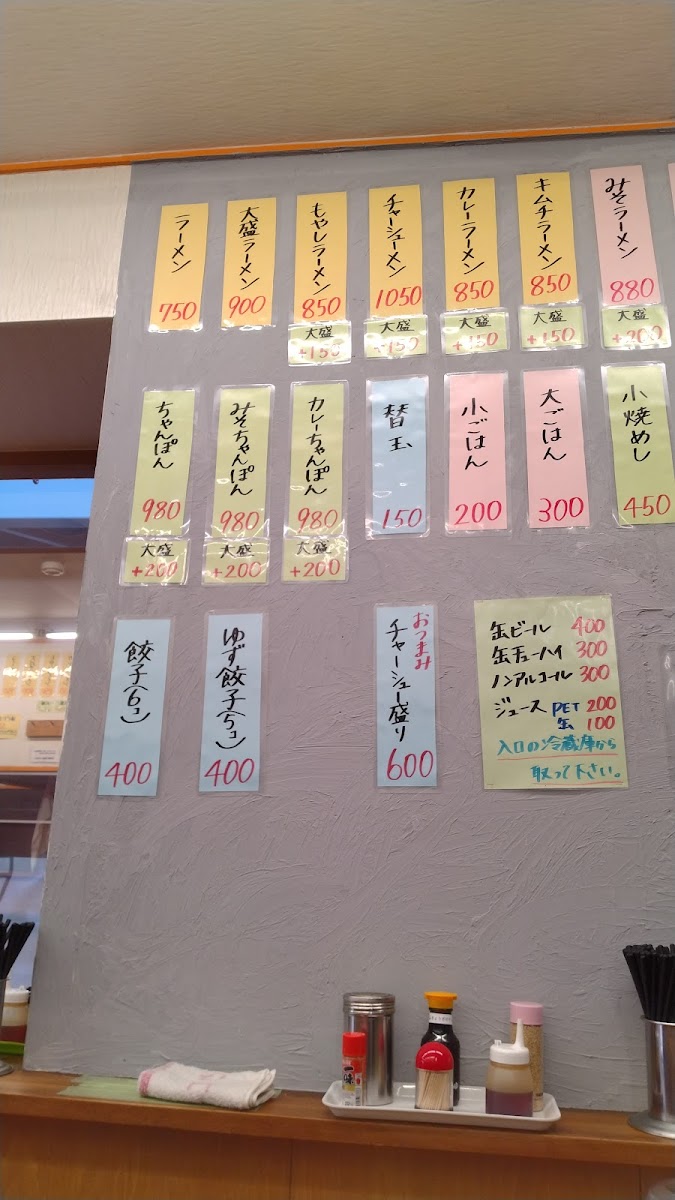 ラーメン
750
大盛ラーメン
900
もやしラーメン
850
大盛
+150
チャーシューメン
1050
大盛
+150
カレーラーメン
850
大盛
+150
キムチラーメン
850
大盛
+150
みそラーメン
880
大盛
+200
ちゃんぽん
980
大盛
+200
みそちゃんぽん
980
大盛
+200
カレーちゃんぽん
980
大盛
+200
替玉
150
小ごはん
200
大ごはん
300
小焼めし
450
餃子(6コ)
400
ゆず餃子(5コ)
400
おつまみ
チャーシュー盛り
600
缶ビール 400
缶チューハイ 300
ノンアルコール 300
ジュース PET 200
缶 100
入口の冷蔵庫から
取って下さい。
一味